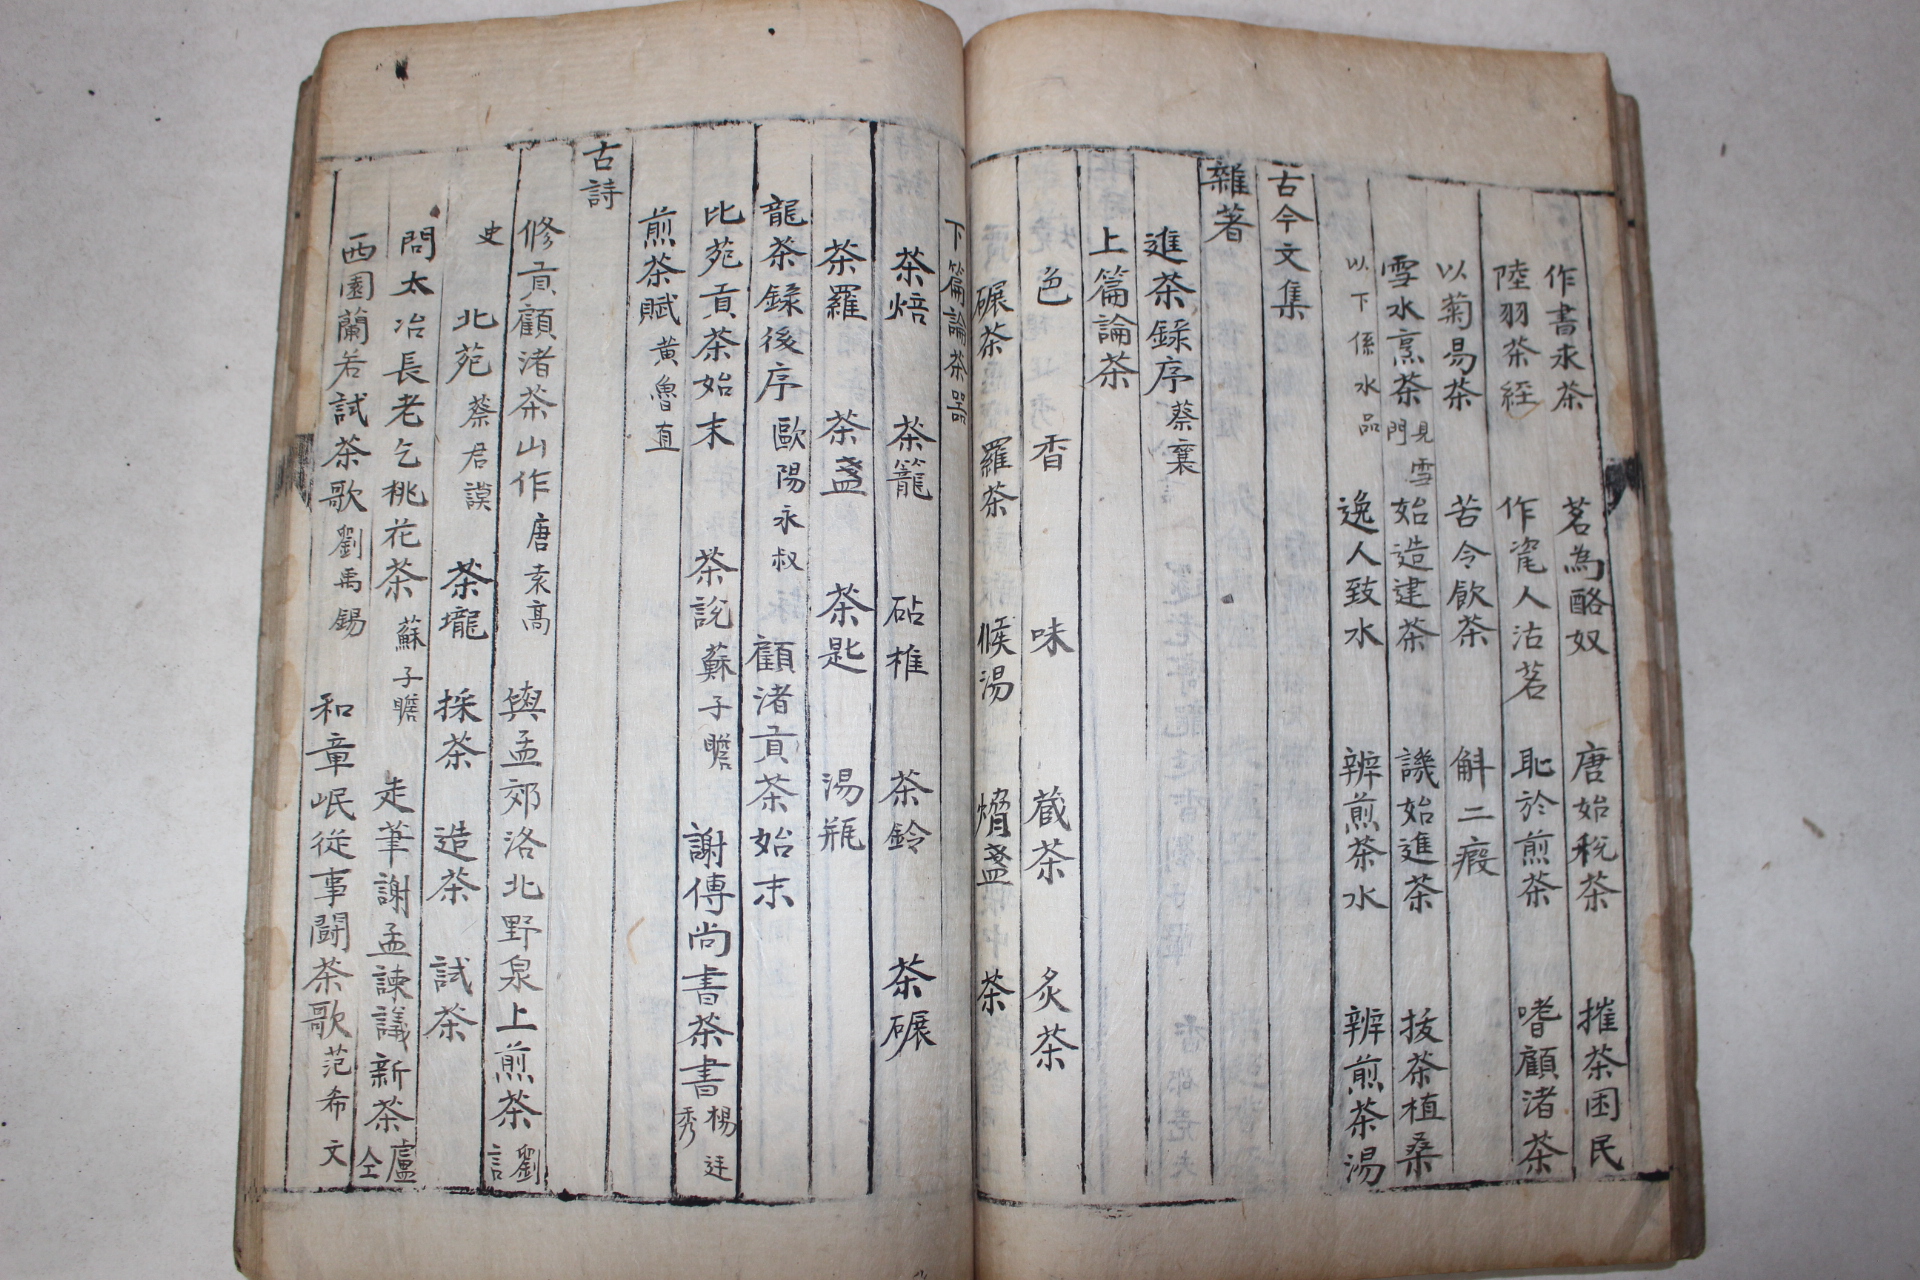 作書求茶 茗為酪奴 唐始稅茶 摧茶困民
陸羽茶經 作瓷人沽茗 恥於煎茶 嗜顧渚茶
以菊易茶 苦令飲茶 斛二瘕
雪水烹茶 見雪門 始造建茶 譏始進茶 拔茶植桑
以下係水品 逸人致水 辨煎茶水 辨煎茶湯
古今文集
雜著
進茶錄序 蔡襄
上篇論茶
色 香 味 蔵茶 炙茶
碾茶 羅茶 候湯 熁盞 茶
下篇論茶器
茶焙 茶籠 砧椎 茶鈴 茶碾
茶羅 茶盞 茶匙 湯瓶
龍茶錄後序 歐陽永叔 顧渚貢茶始末
比苑貢茶始末 茶說 蘇子瞻 謝傅尚書茶書 楊廷秀
煎茶賦 黄魯直
古詩
修貢顧渚茶山作 唐袁高 與孟郊洛北野泉上煎茶 劉言
史 北苑 蔡君謨 茶壠 採茶 造茶 試茶
問太冶長老乞桃花茶 蘇子瞻 走筆謝孟諫議新茶 盧仝
西園蘭若試茶歌 劉禹錫 和章岷從事鬪茶歌 范希文